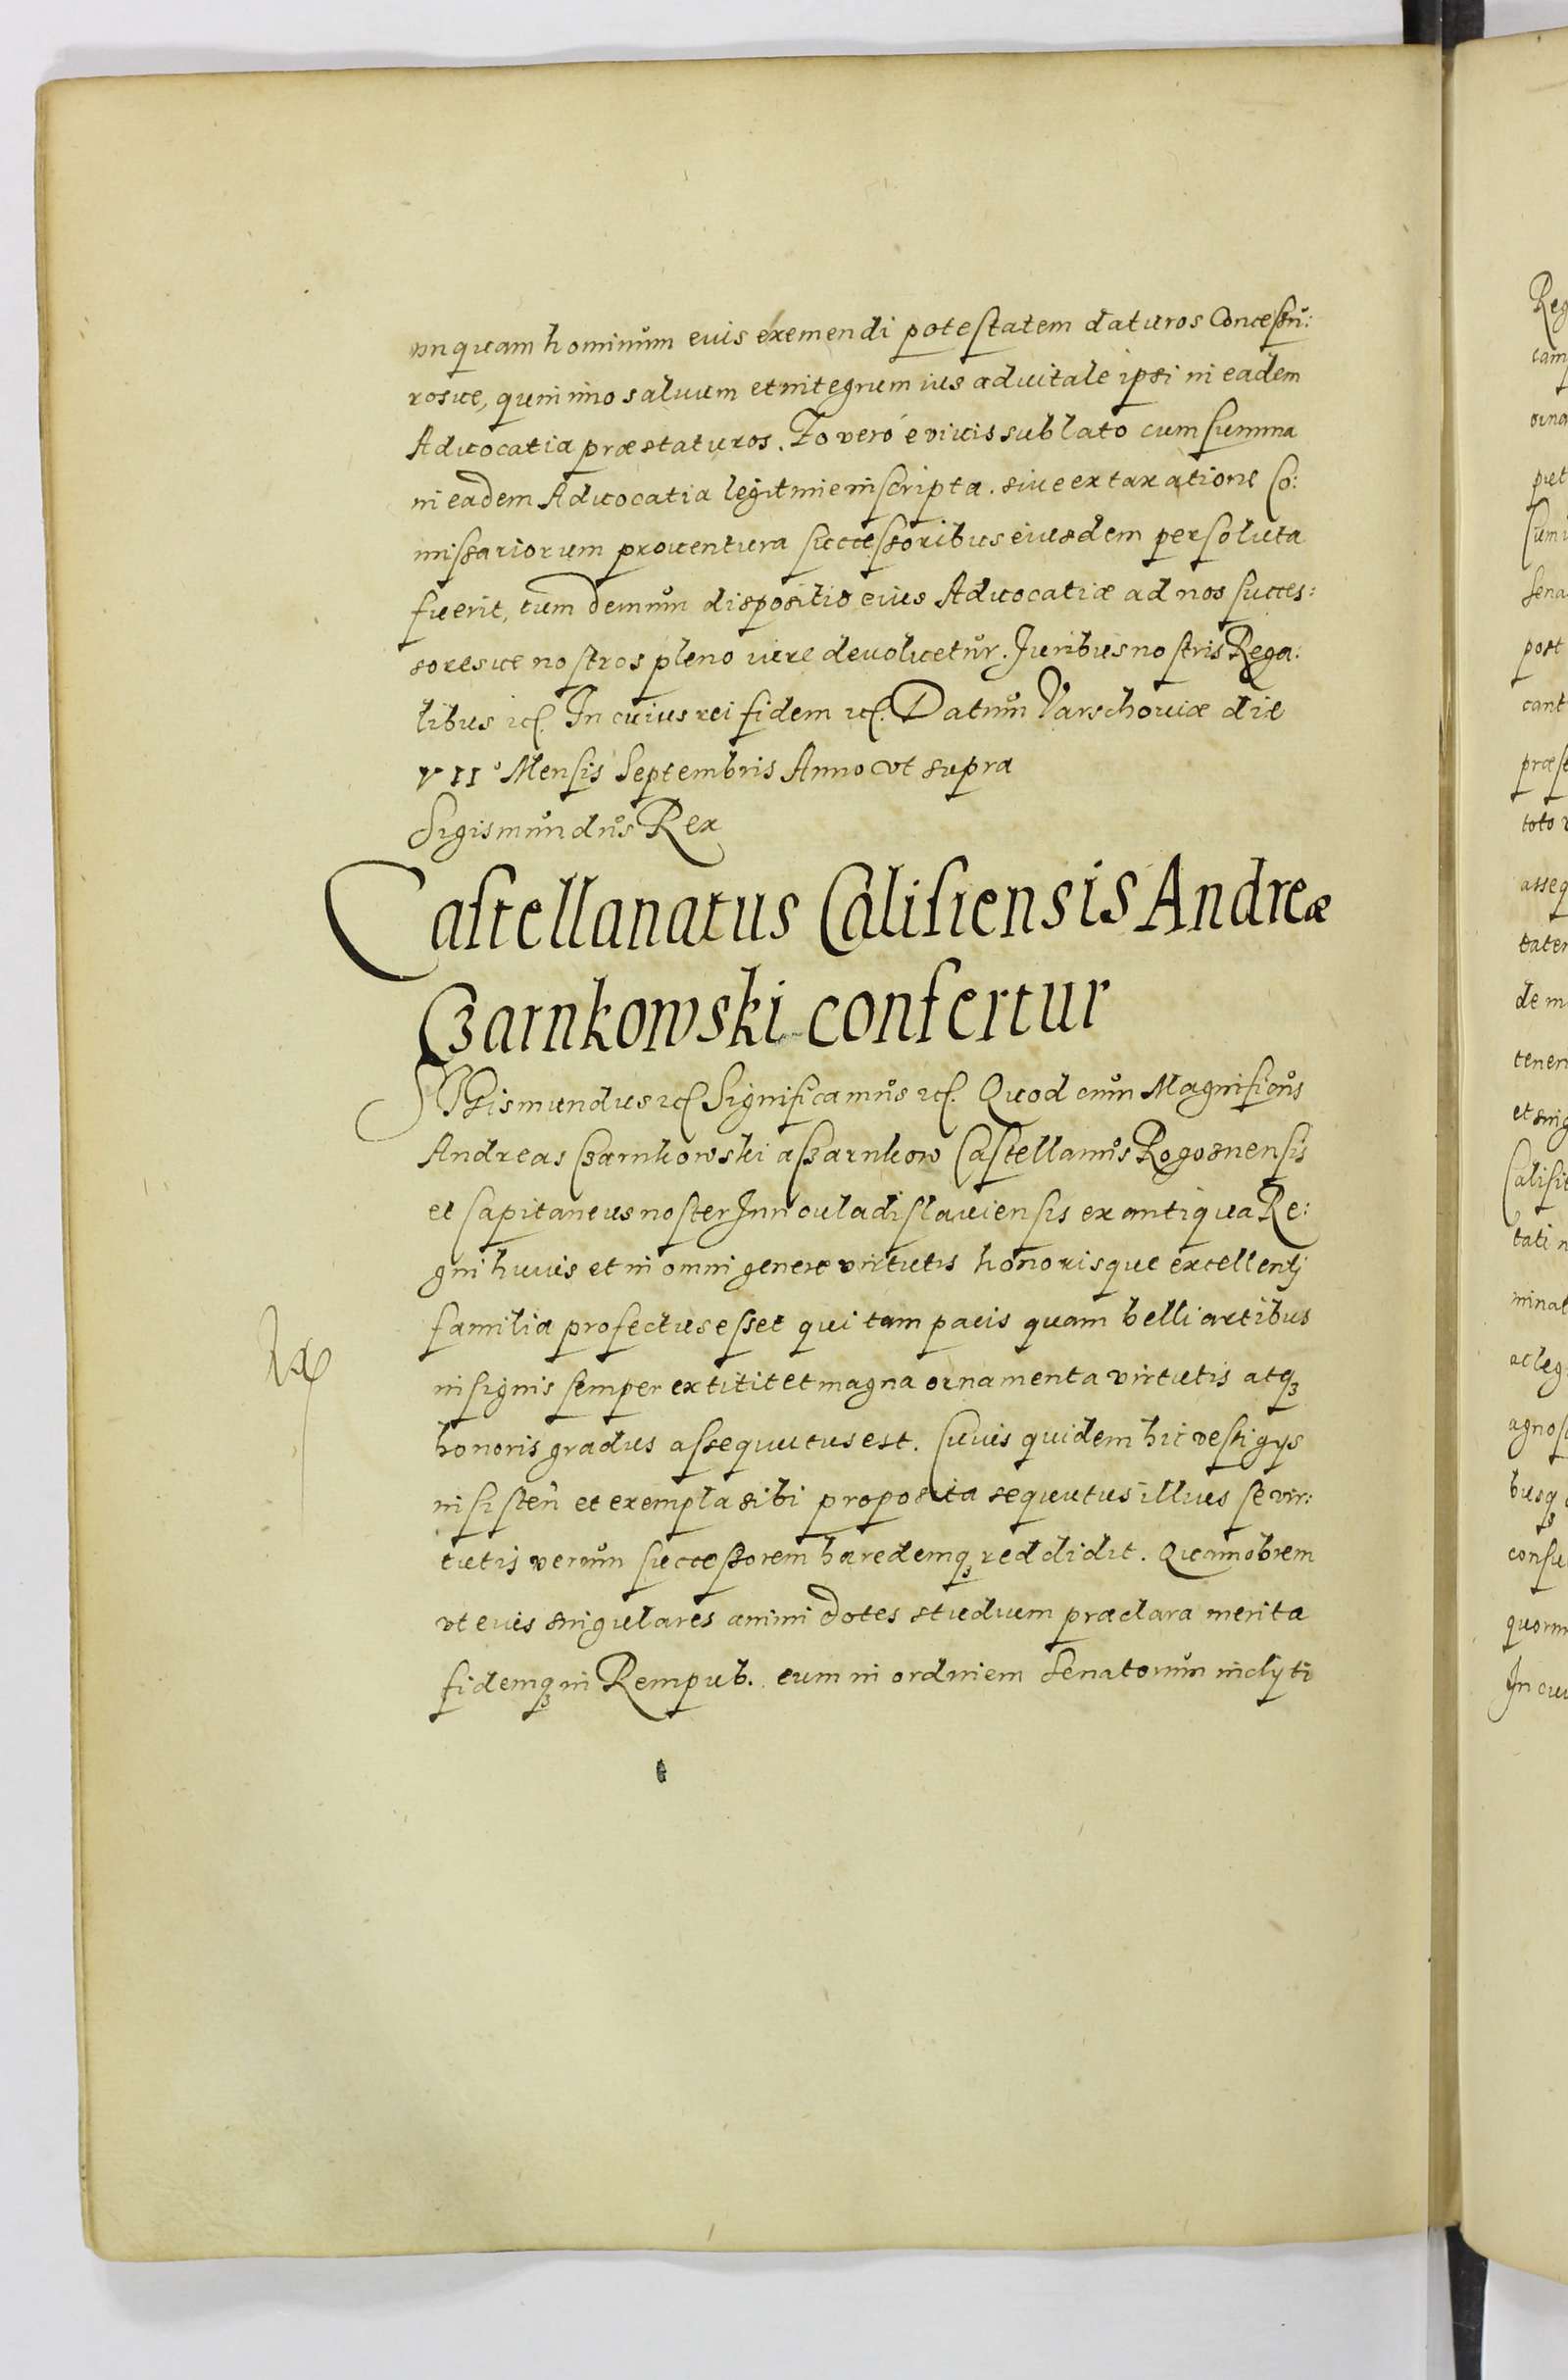 vnquam hominum eius exemendi potestatem daturos Concessu:
rosue, quin imo saluum et integrum ius aduitale ipsi in eadem
Aduocatia præstaturos. Eo vero è viuis sublato cum summa
in eadem Aduocatia legitime inscripta. siue ex taxatione Co:
missariorum prouentura successoribus eiusdem persoluta
fuerit, tum demum dispositio eius Aduocatiæ ad nos succes:
soresue nostros pleno iure deuoluetur. Juribus nostris Rega:
libus etc. In cuius rei fidem etc. Datum Varschouiæ die
VII° Mensis Septembris Anno vt supra
Sigismundus Rex
Castellanatus Calisiensis Andreæ
Czarnkowski confertur
Sigismundus etc Significamus etc. Quod cum Magnificus
Andreas Czarnkowski a Czarnkow Castellanus Rogosnensis
et Capitaneus noster Innouladislauiensis ex antiqua Re:
gni huius et in omni genere virtutis honorisque excellenti
familia profectus esset qui tam pacis quam belli artibus
insignis semper extitit et magna ornamenta virtutis atq3
honoris gradus assequutus est. Cuius quidem hic vestigijs
insisten et exempla sibi proposita sequutus illius se vir:
tutis verum successorem hæredemq3 reddidit. Quamobrem
vt eius singulares animi dotes studium præclara merita
fidemq3 in Rempub. eum in ordinem Senatorum inclyti